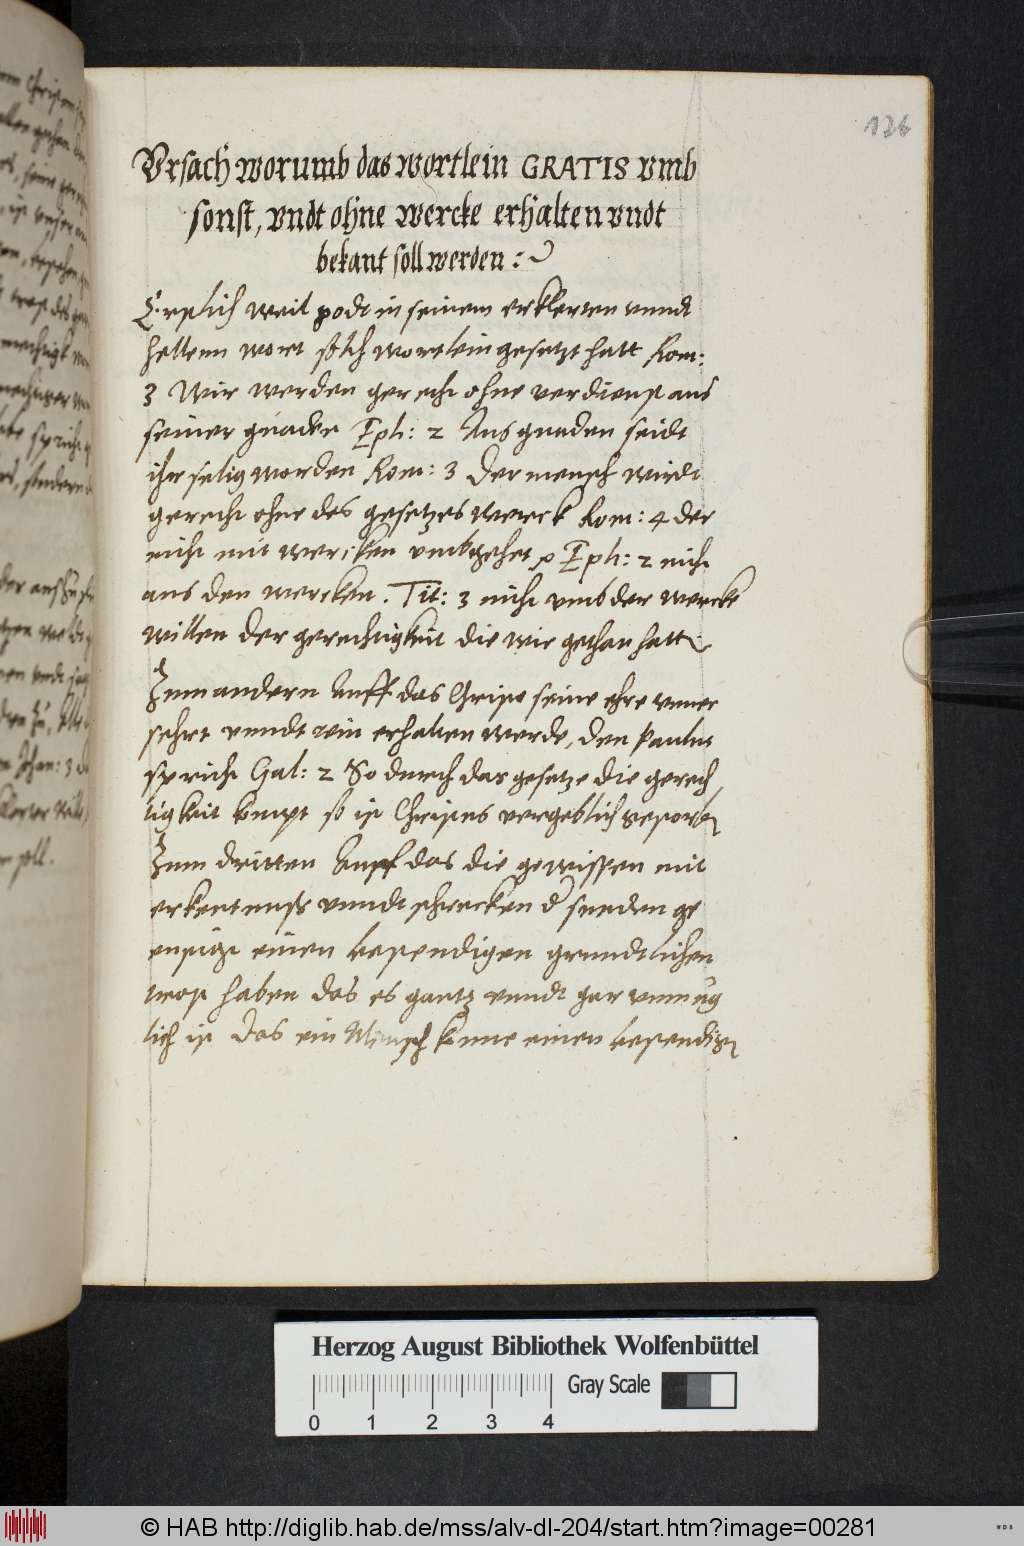 126
Vrsach worumb das wortlein GRATIS vmb
sonst, vndt ohne wercke erhalten vndt
bekant soll werden :
Erstlich weil Godt in seinem erklerten vnndt
hellenn wort solch wortlein gesetzt hatt Rom:
3 Wir werden gerecht ohne verdienst aus
seiner gnaden Eph: 2 Aus gnaden seidt
ihr selig worden Rom: 3 Der mensch wirdt
gerecht ohne des gesetzes werck Rom: 4 der
nicht mit wercken vmbgehet Eph: 2 nicht
aus den wercken. Tit: 3 nicht vmb der wercke
willen der gerechtigkeit die wir gethan hatten
Zum andern Auff das Christo seine ehre vnuer
sehrt vnndt rein erhalten werde, den Paulus
spricht Gal: 2 So durch das gesetze die gerech
tigkeit kompt so ist Christus vergeblich gestorben
Zum dritten Auff das die gewissen mit
erkentnuss vnndt schrecken der sunden ge
engstigt einen bestendigen grundtlichen
trost haben das es gantz vnndt gar vnmug
lich ist das ein Mensch konne einen bestendigen
Herzog August Bibliothek Wolfenbüttel
Gray Scale
0 1 2 3 4
© HAB http://diglib.hab.de/mss/alv-dl-204/start.htm?image=00281